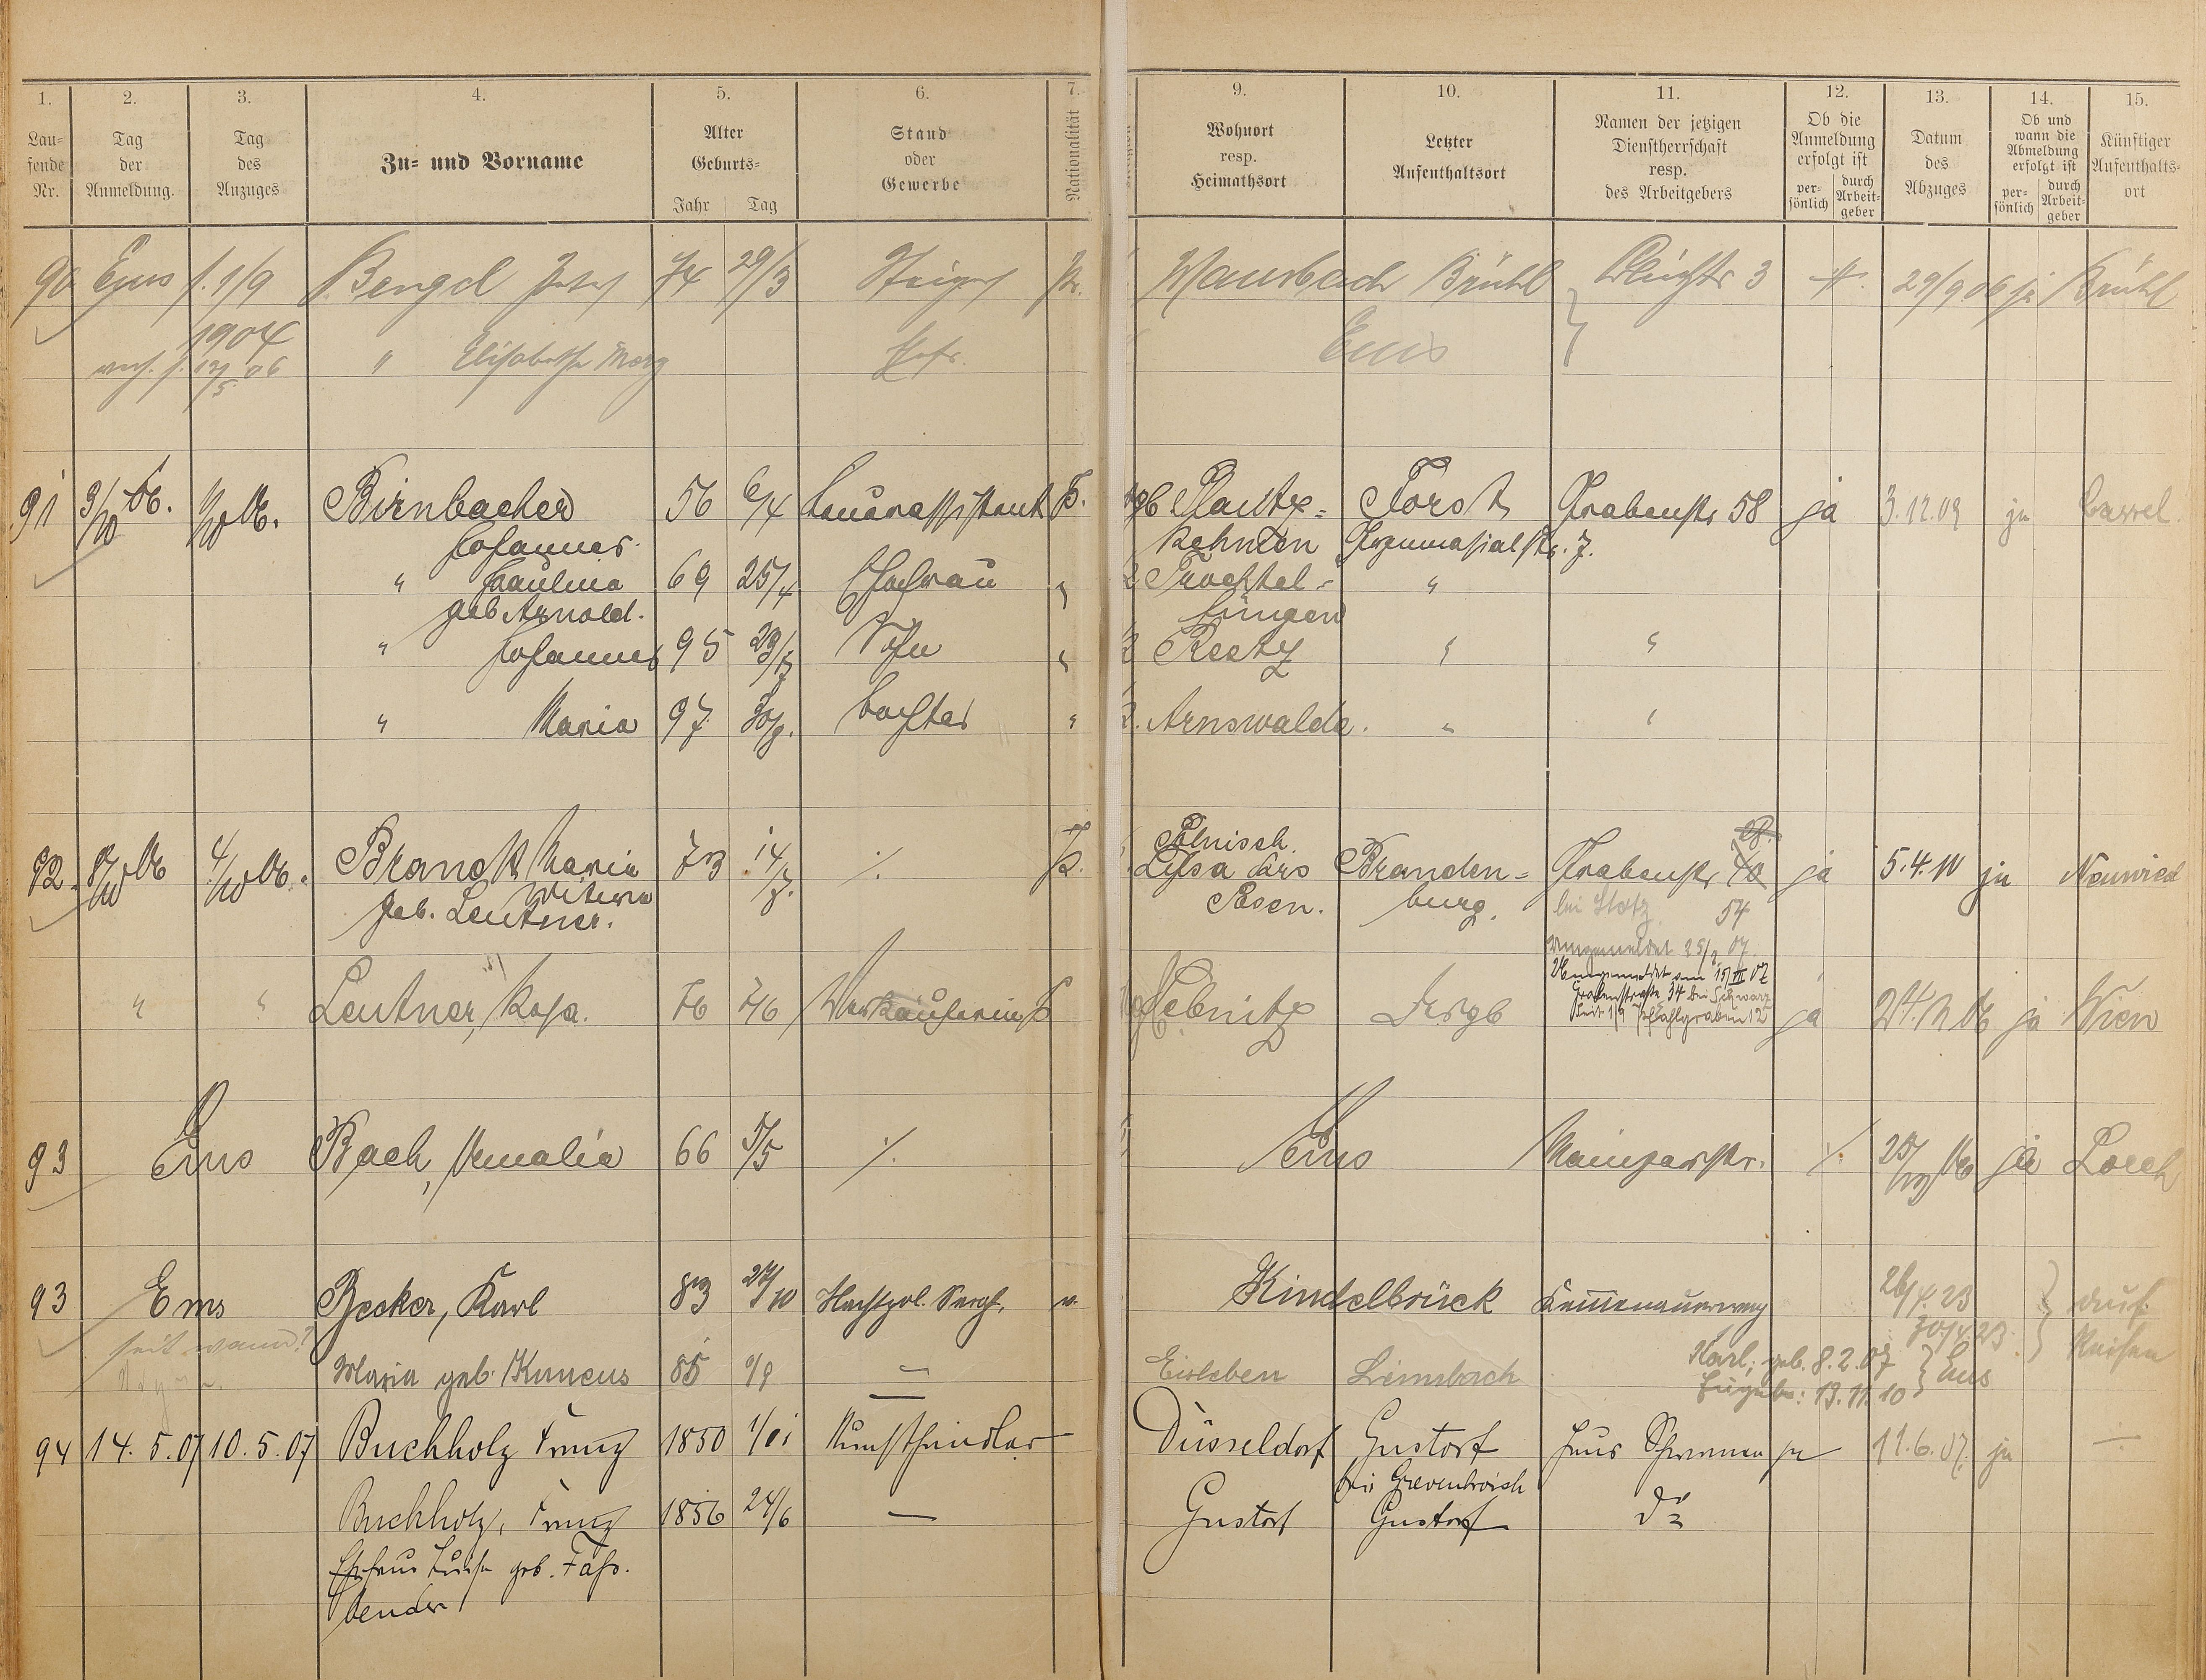 1. 2. 3. 4. 5. 6. 7. 9. 10. 11. 12. 13. 14. 15.
Lau=
fende
Nr.
Tag
der
Anmeldung.
Tag
des
Anzuges
Zu= und Vorname
Alter
Geburts=
Jahr Tag
Stand
oder
Gewerbe
Nationalität
Wohnort
resp.
Heimathsort
Letzter
Aufenthaltsort
Namen der jetzigen
Dienstherrschaft
resp.
des Arbeitgebers
Ob die
Anmeldung
erfolgt ist
per=
sönlich
durch
Arbeit=
geber
Datum
des
Abzuges
Ob und
wann die
Abmeldung
erfolgt ist
per=
sönlich
durch
Arbeit=
geber
Künftiger
Aufenthalts=
ort
90 Ems f. 1/9 Bengel Josef 74 29/3 Steiger Pr. Brühl 3 29/9 06 ja Brühl
1904
12/5 06 " Elisabetha Ems
91 3/10 06. 1/10 06. Birnbacher 56 6/4 P. Plautz= Forst Grabenstr 58 ja 3.12.09 ja Cassel.
Johannes. Kehmen Gymnasialstr. 7.
" Paulina 69 25/4 Ehefrau " Trochtel= "
geb Arnold. fingen
" Johannes 95 23/7 Sohn " Reetz " "
" Maria 97 30/9. Tochter " Arnswalde. " "
Polnisch 28.
92. 8/10 06 4/10 06. Brandt Maria 73 14/7. ·/. P. Lissa Krs Branden= Grabenstr 40 ja 5.4.10 ja Neuwied
Witwe
geb. Leutner. Posen. burg. bei Stotz 54
Umgemeldet 25/2 07
Umgemeldet am 15/III 07
Grabenstraße 34 bei Schwarz
Seit 1/9 Pfahlgraben 12
" " Leutner, Rosa. 76 7/6 Verkäuferin P Sebnitz desgl ja 24.12 06 ja Wien
93 Ems Bach, Amalie 66 5/5 ·/. Ems Mainzerstr. ·/. 06 ja Lorch
93 Ems Becker, Karl 83 27/10 Nachtpol. Sergt. " Kindelbrück Kemmenauerweg 26/4.23
seit wann? 30/4.23 Reisen
Maria geb. Kuneus 85 9/9 — Eisleben Limbach Karl, geb. 8.2.07 } Ems
: 13.11.10
94 14. 5. 07 10. 5. 07 Buchholz Franz 1850 1/01 Kunsthändler Düsseldorf Gustorf Haus ja 11.6.07. ja —
bei Grevenbroich
Buchholz, Franz 1856 24/6 — Gustorf Gustorf do
Ehefrau Luise geb. Faß=
bender